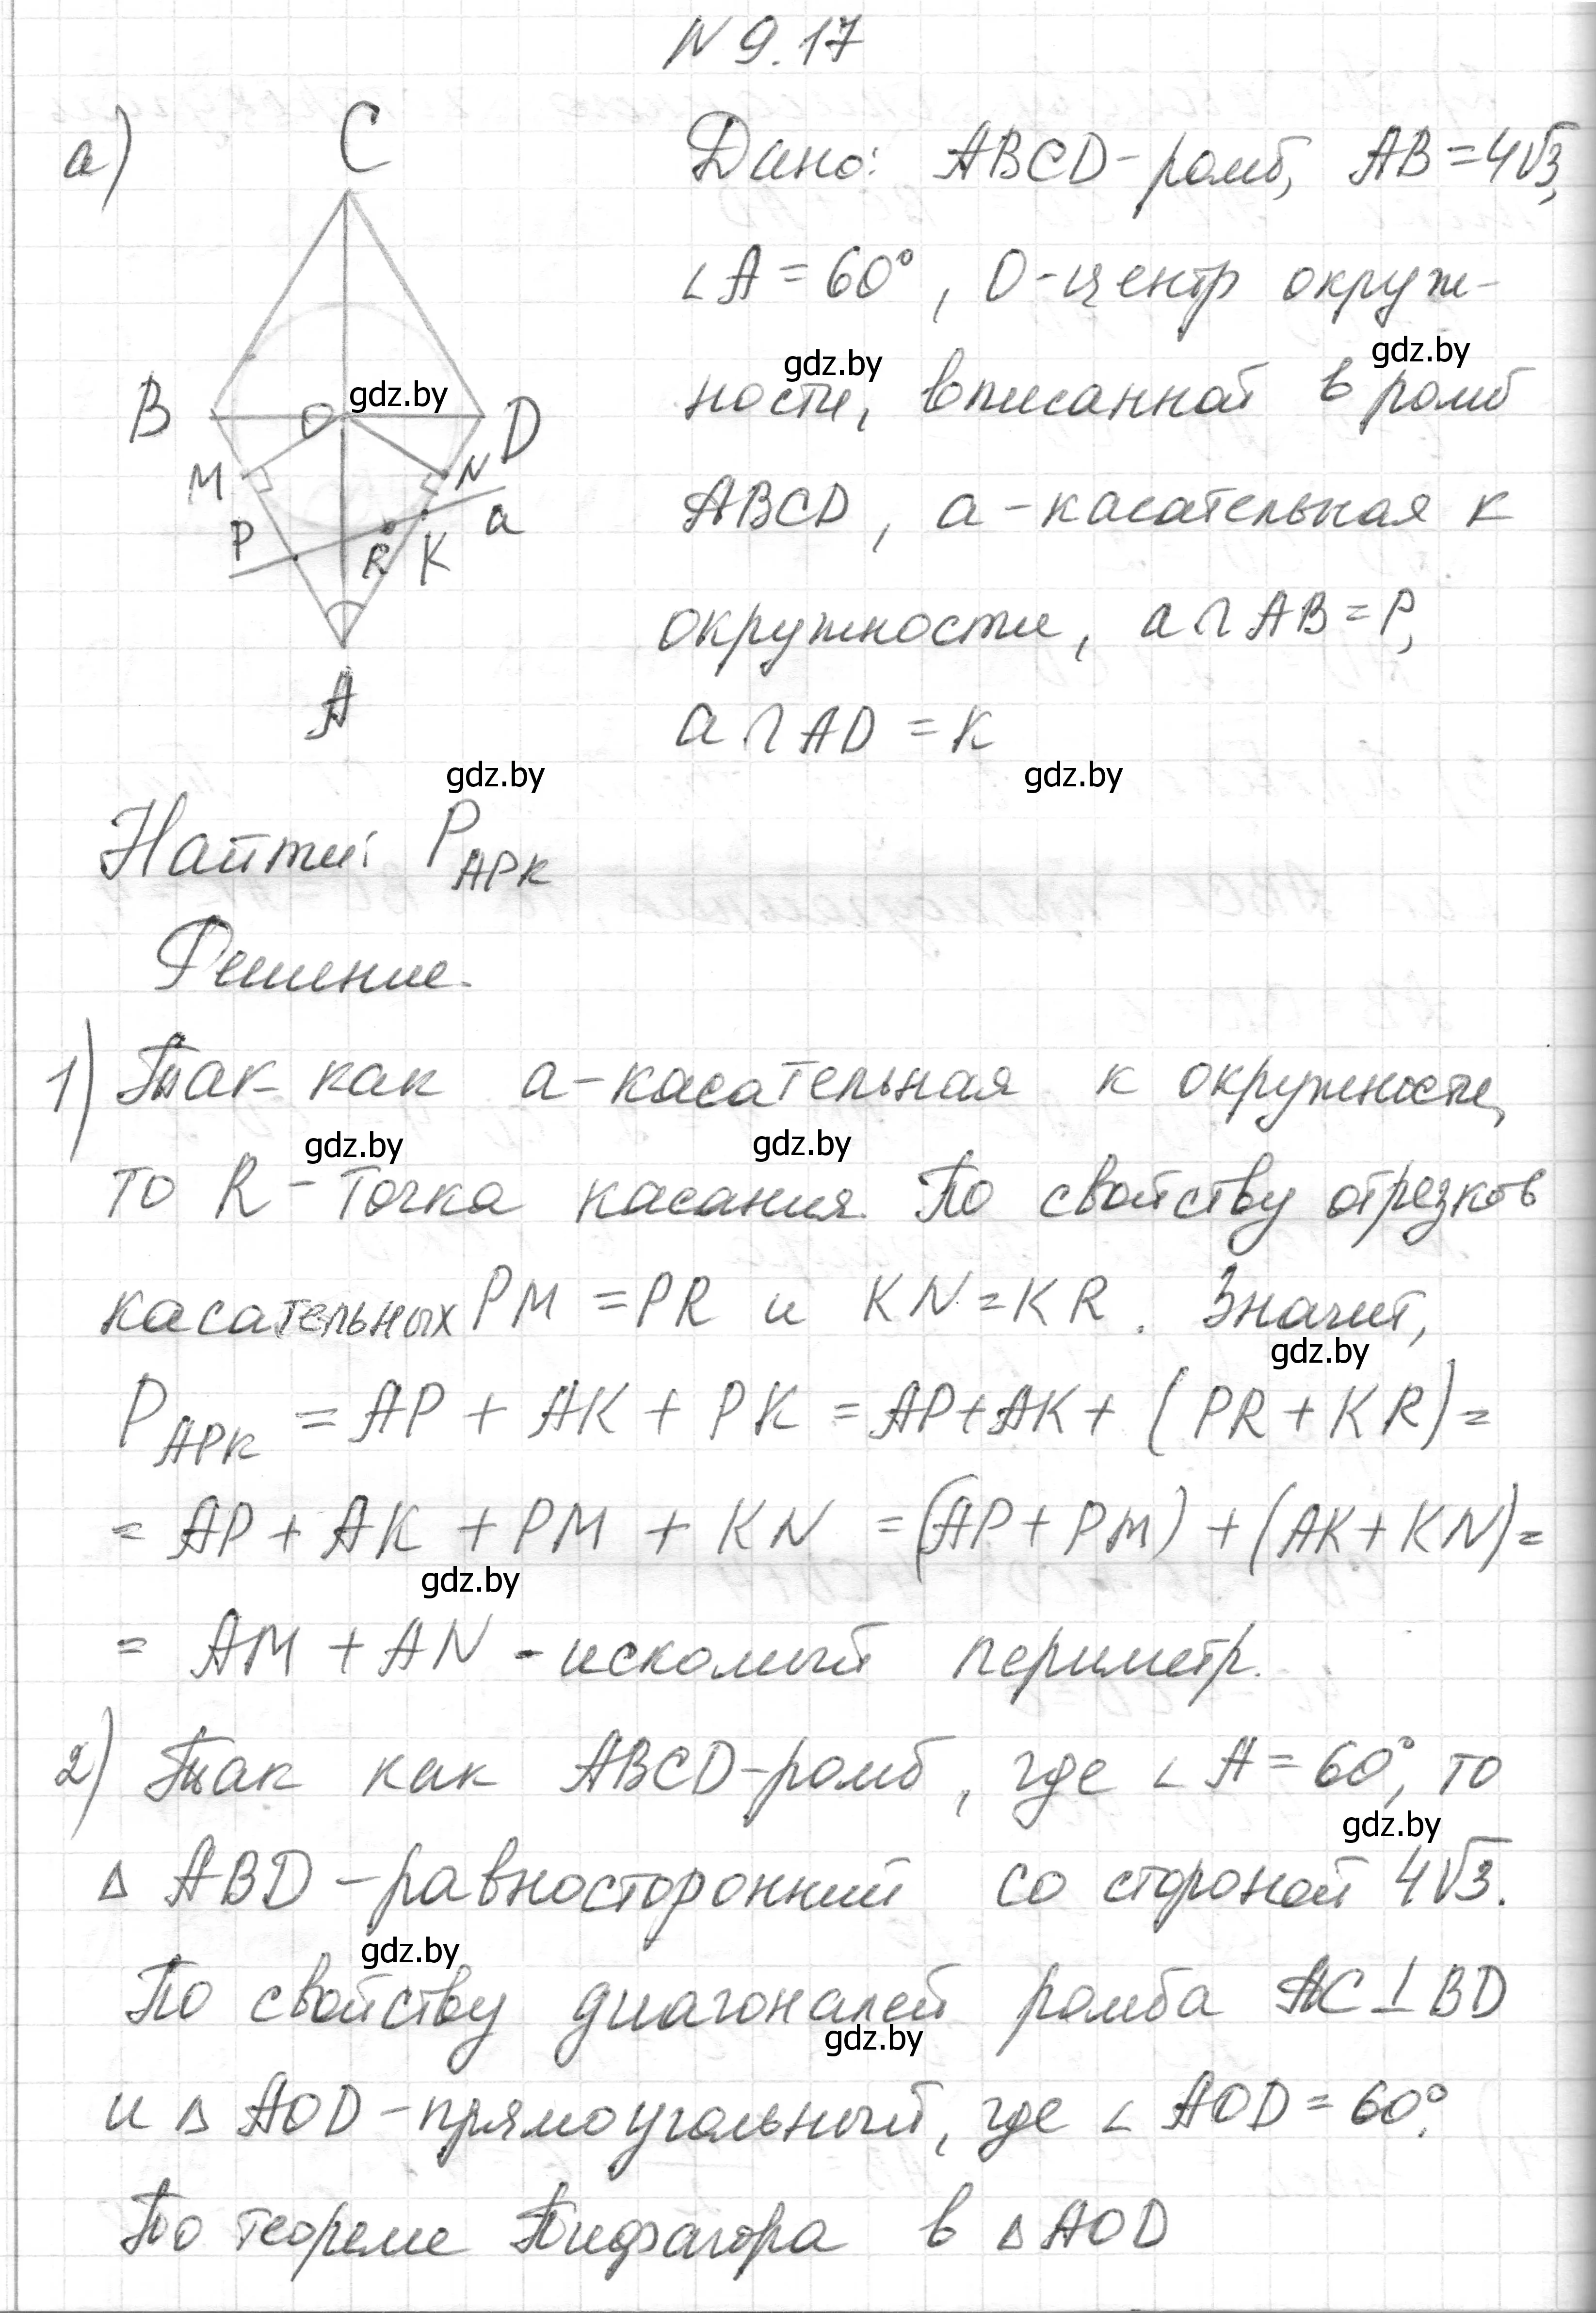 N 9.17
а)
C
B
O
D
M
N
P
R
K
a
A
Дано: ABCD-ромб, AB=4√3,
∠A=60°, O-центр окруж-
ности, вписанной в ромб
ABCD, a-касательная к
окружности, a∩AB=P,
a∩AD=K
Найти: P_APK
Решение.
1) Так как a-касательная к окружности,
то R-точка касания. По свойству отрезков
касательных PM=PR и KN=KR. Значит,
P_APK = AP + AK + PK = AP+AK+(PR+KR)=
= AP + AK + PM + KN = (AP+PM)+(AK+KN)=
= AM + AN - искомый периметр.
2) Так как ABCD-ромб, где ∠A=60°, то
△ABD-равносторонний со стороной 4√3.
По свойству диагоналей ромба AC⊥BD
и △AOD-прямоугольный, где ∠AOD=60°.
По теореме Пифагора в △AOD
gdz.by
gdz.by
gdz.by
gdz.by
gdz.by
gdz.by
gdz.by
gdz.by
gdz.by
gdz.by
gdz.by
gdz.by